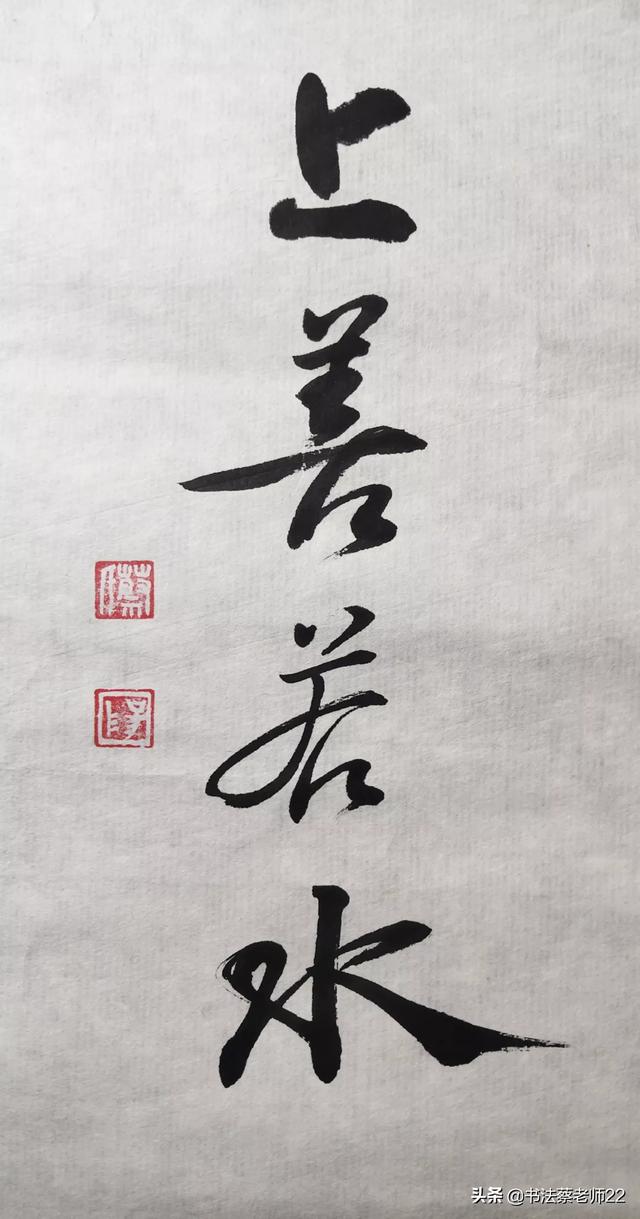 上善若水
头条 @书法蔡老师22